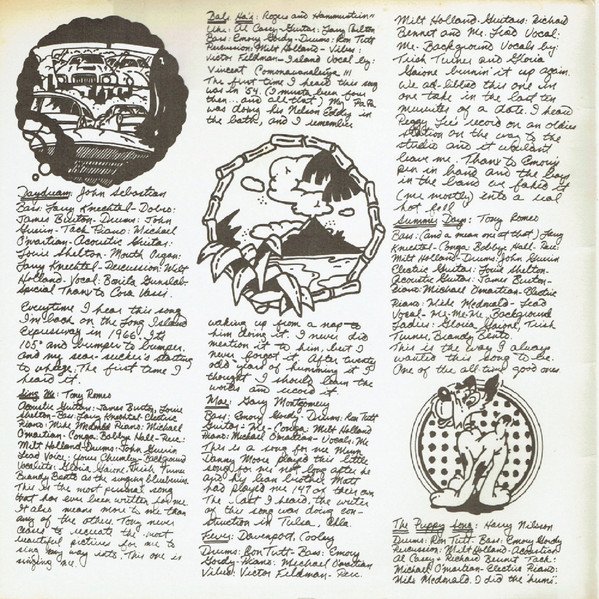 Daydream: John Sebastian
Bass: Larry Knechtel - Dobro:
James Burton - Drums: John
Guerin - Tack Piano: Michael
Omartian - Acoustic Guitar:
Louie Shelton - Mouth Organ:
Larry Knechtel - Percussion: Milt
Holland - Vocal: Bonita Gunslab -
Special Thanx to Cora Vassi.
Everytime I hear this song
I'm back on the Long Island
Expressway in 1966. It's
105° and bumper to bumper
and my seer-sucker's starting
to The first time I
heard it.
Sing Me: Tony Romeo
Acoustic Guitars: James Burton, Louie
Shelton - Bass: Larry Knechtel - Electric
Piano: Mike McDonald - Piano: Michael
Omartian - Conga: Bobbye Hall - Perc:
Milt Holland - Drums: John Guerin
Lead Voice: Background
Vocalists: Gloria Grione, Trish Turner,
Brandy Bento as the singing bluebirds.
This is the most personal song
that has ever been written for me.
It also means more to me than
any of the others. Tony never
ceases to create the most
beautiful pictures for me to
sing my way into. This one is
singing me.
Bali Ha'i: Rogers and Hammerstein
Uke: Al Casey - Guitar: Larry Carlton
Bass: Emory Gordy - Drums: Ron Tutt
Percussion: Milt Holland - Vibes:
Victor Feldman - Island Vocal by:
Vincent !!!
The first time I heard this song
was in '54. (I musta been slower
then.. and all that) My Pa Pa
was doing his Nelson Eddy in
the bath, and I remember
waking up from a nap to
him doing it. I never did
mention it to him. But I
never forgot it. After twenty
odd years of humming it I
thought I should learn the
words and record it.
Moe: Gary Montgomery
Bass: Emory Gordy - Drums: Ron Tutt
Guitars: Me - Conga: Milt Holland
Piano: Michael Omartian - Vocals: Me
This is a song for one
Danny Moore played this little
song for me not long after he
and my lean brother Matt
had played our 147 of their own
The last I heard, the writer
of this song was doing con-
struction in Tulsa, Okla.
Fever: Davenport, Cooley
Drums: Ron Tutt - Bass: Emory
Gordy - Piano: Michael Omartian
Vibes: Victor Feldman - Perc:
Milt Holland - Guitars: Richard
Bennett and Me. Lead Vocal:
Me - Background Vocals by:
Trish Turner and Gloria
Grione burnin' it up again.
We ad-libbed this one in
one take in the last ten
minutes of a date. I heard
Peggy Lee's record on an oldies
station on the way to the
studio and it wouldn't
leave me. Thanx to Emory's
pen in hand and the boys
in the band we faked it
(me mostly) into a real
hot lick!
Summer Days: Tony Romeo
Bass: (and a mean one at that) Larry
Knechtel - Conga: Bobbye Hall - Perc:
Milt Holland - Drums: John Guerin
Electric Guitar: Louie Shelton -
Acoustic Guitar: James Burton -
Piano: Michael Omartian - Electric
Piano: Mike McDonald - Lead
Vocal - Me-Me-Me. Background
Ladies: Gloria Grione, Trish
Turner, Brandy Bento.
This is the way I always
wanted this song to be.
One of the all time good ones
The Puppy Song: Harry Nilsson
Drums: Ron Tutt - Bass: Emory Gordy
Percussion: Milt Holland - Acoustic:
Al Casey - Richard Bennett Tack:
Michael Omartian - Electric Piano:
Mike McDonald. I did the 'hums'.